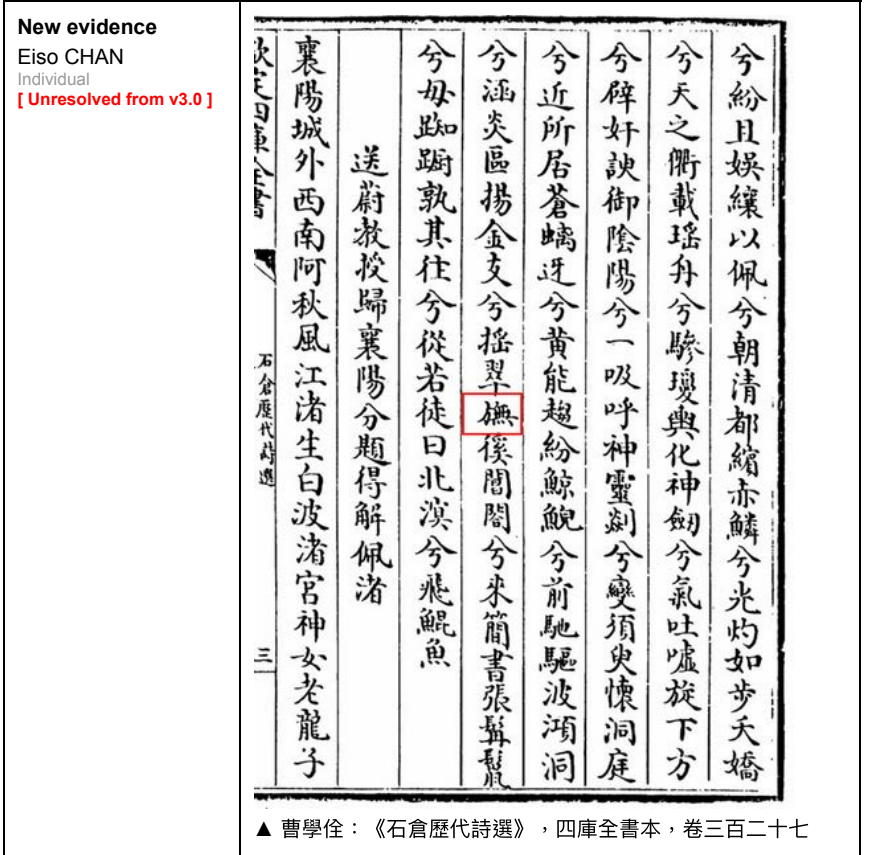 New evidence
Eiso CHAN
Individual
[ Unresolved from v3.0 ]
兮紛且娛纕以佩兮朝清都繽赤鱗兮光灼如步夭嬌
兮天之衢載瑶舟兮驂瓊輿化神劒兮氣吐嘘旋下方
兮辟奸諛御陰陽兮一吸呼神靈剡兮變須臾懷洞庭
兮近所居蒼螭迓兮黄能趨紛鯨鯢兮前馳驅波澒洞
兮涵炎區揚金支兮揺翠徯閶闔兮来簡書張髯鬛
兮毋踟蹰孰其往兮從若徒曰北溟兮飛鯤魚
送蔚教授歸襄陽分題得解佩渚
襄陽城外西南阿秋風江渚生白波渚宫神女老龍子
欽定四庫全書
石倉歷代詩選
三
▲ 曹學佺：《石倉歷代詩選》，四庫全書本，卷三百二十七